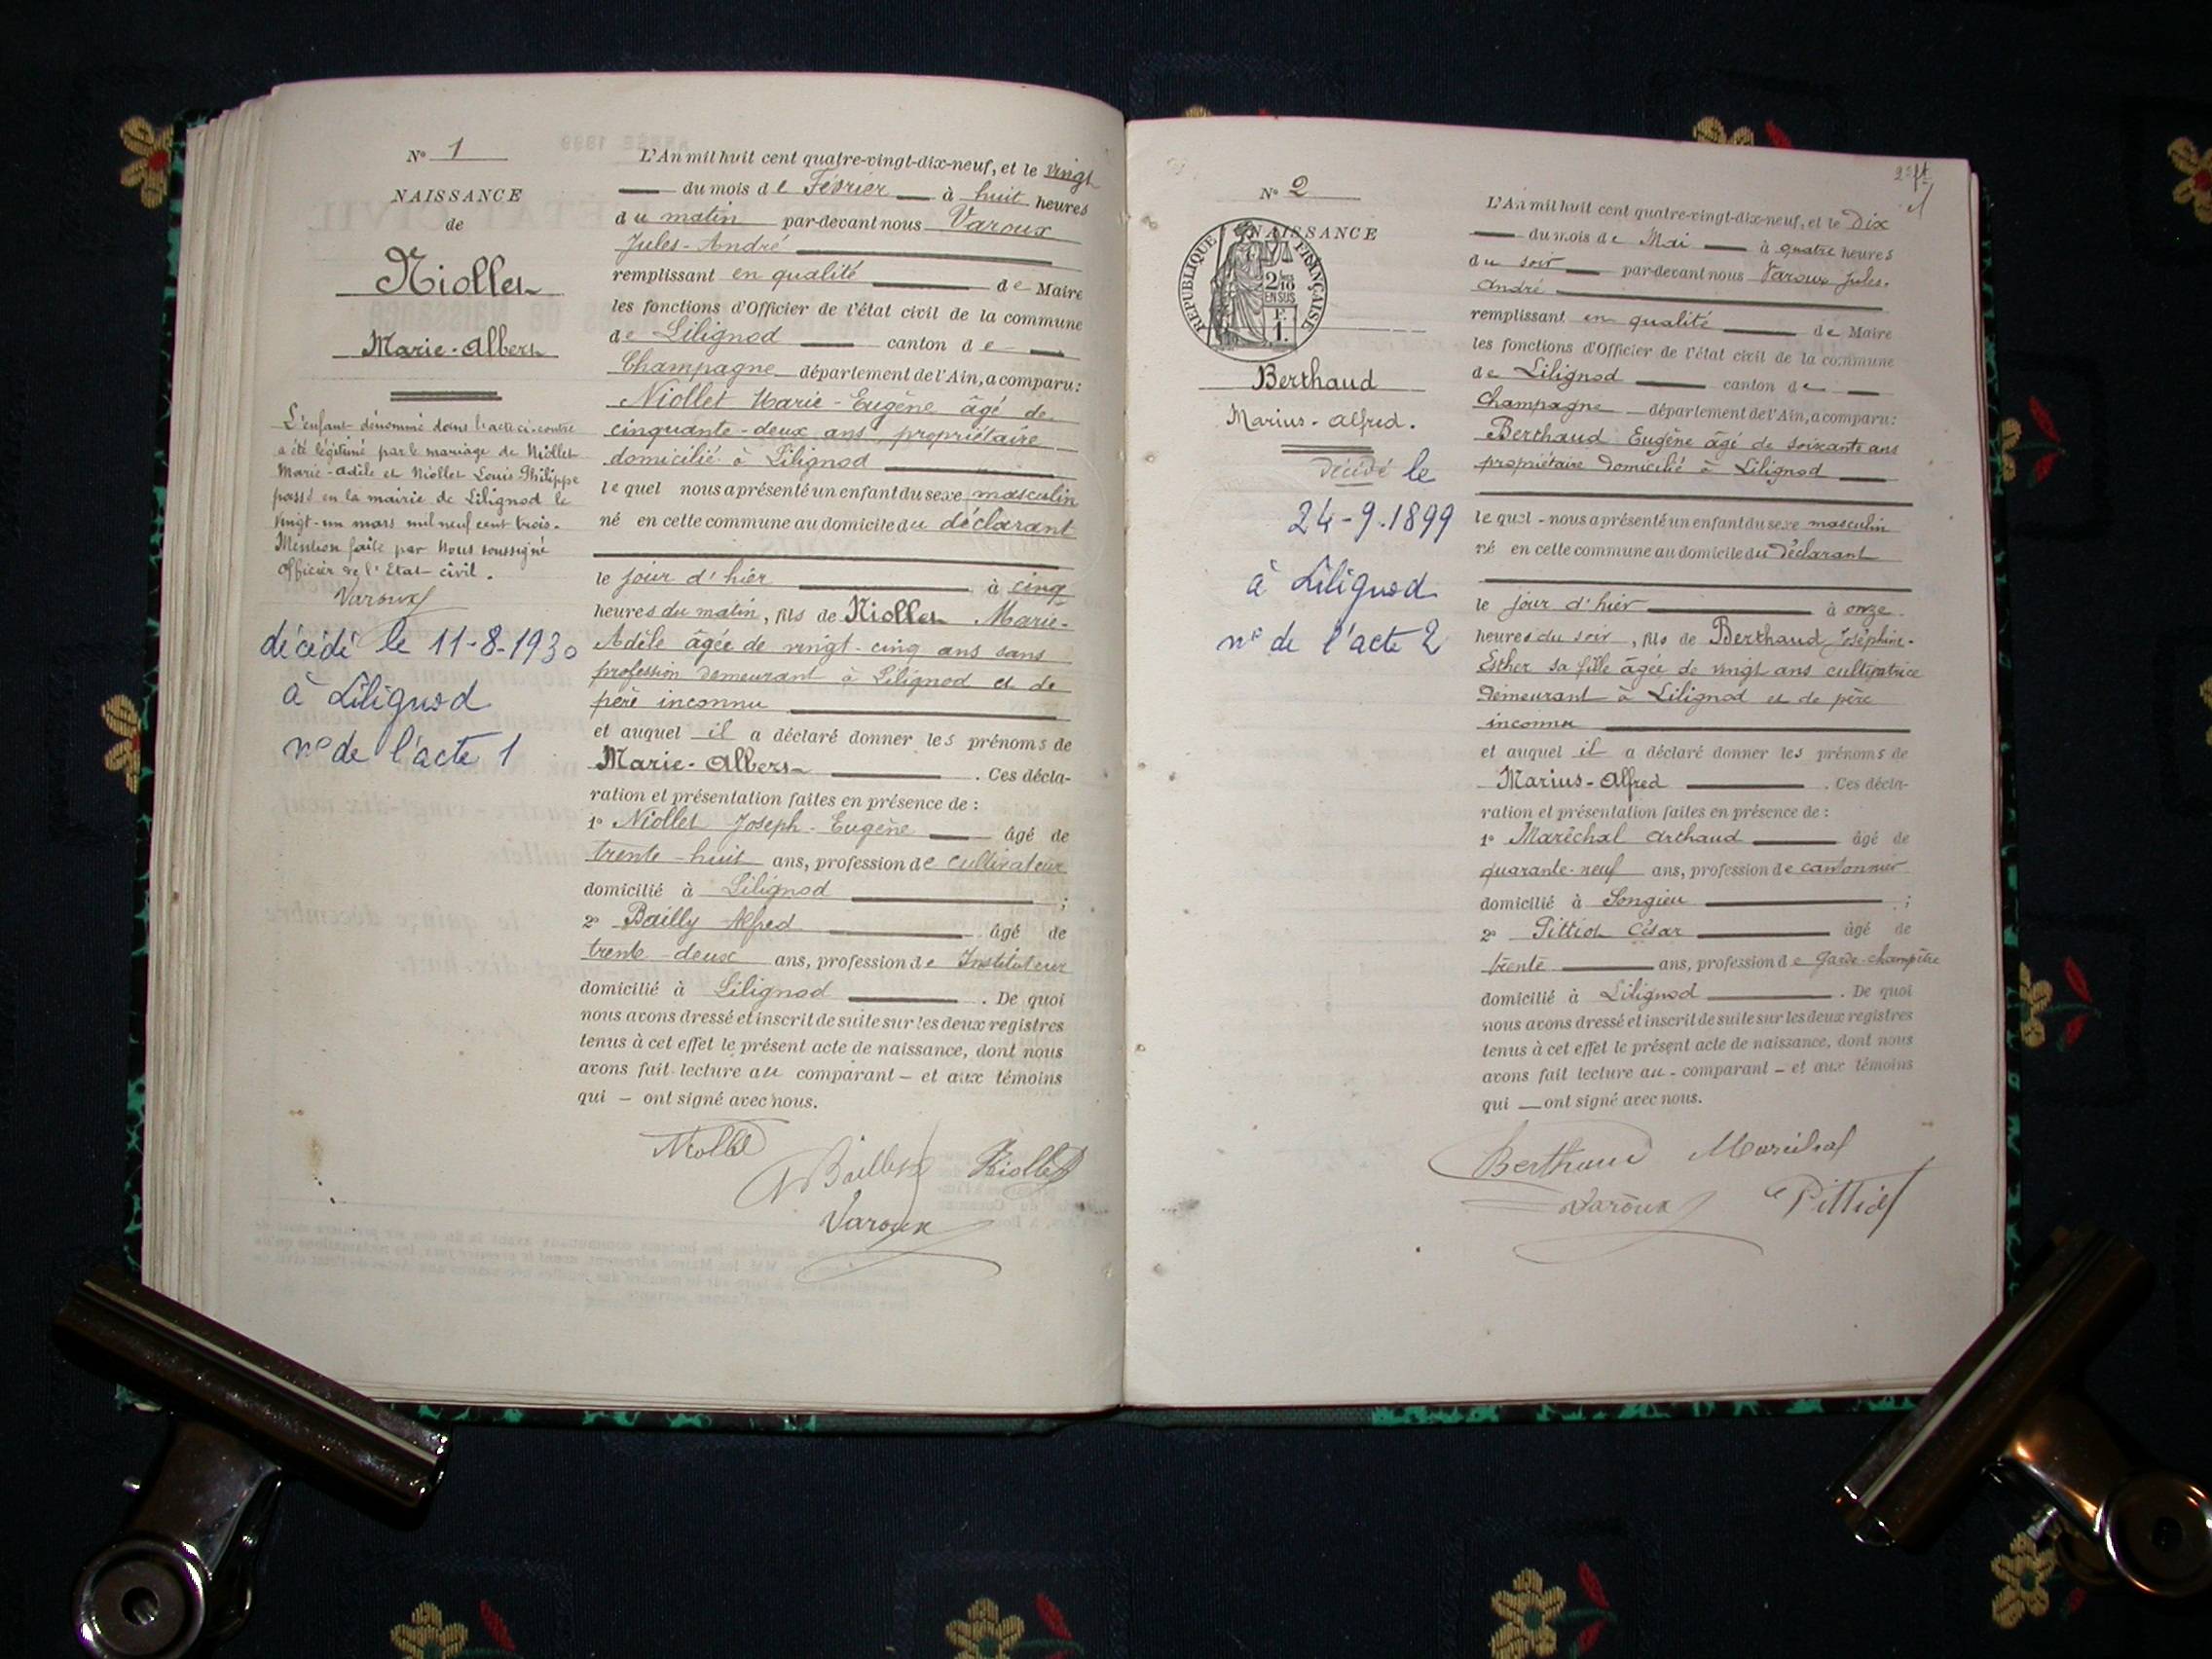 N° 1
NAISSANCE
de
Niollet
Marie-Albert
L'enfant dénommé dans l'acte ci-contre
a été légitimé par le mariage de Niollet
Marie-Adèle et Niollet Louis Philippe
passé en la mairie de Lilignod le
vingt-un mars mil neuf cent trois.
Mention faite par Nous soussigné
Officier de l'Etat-civil.
Varoux
décédé le 11-8-1930
à Lilignod
n° de l'acte 1
L'An mil huit cent quatre-vingt-dix-neuf, et le vingt
du mois de Février à huit heures
du matin par-devant nous Varoux
Jules-André
remplissant en qualité de Maire
les fonctions d'Officier de l'état civil de la commune
de Lilignod canton de
Champagne département de l'Ain, a comparu:
Niollet Marie-Eugène âgé de
cinquante-deux ans, propriétaire
domicilié à Lilignod
lequel nous a présenté un enfant du sexe masculin
né en cette commune au domicile du déclarant
le jour d'hier à cinq
heures du matin, fils de Niollet Marie-
Adèle âgée de vingt-cinq ans sans
profession demeurant à Lilignod et de
père inconnu
et auquel il a déclaré donner les prénoms de
Marie-Albert . Ces décla-
ration et présentation faites en présence de :
1° Niollet Joseph-Eugène âgé de
trente-huit ans, profession de cultivateur
domicilié à Lilignod ;
2° Bailly Alfred âgé de
trente-deux ans, profession de Instituteur
domicilié à Lilignod . De quoi
nous avons dressé et inscrit de suite sur les deux registres
tenus à cet effet le présent acte de naissance, dont nous
avons fait lecture au comparant – et aux témoins
qui – ont signé avec nous.
Niollet
A Bailly Niollet
Varoux
N° 2
NAISSANCE
REPUBLIQUE FRANÇAISE
2/10
EN SUS
F.
1.
Berthaud
Marius-Alfred.
décédé le
24-9-1899
à Lilignod
n° de l'acte 2
L'An mil huit cent quatre-vingt-dix-neuf, et le Dix
du mois de Mai à quatre heures
du soir par-devant nous Varoux Jules-
André
remplissant en qualité de Maire
les fonctions d'Officier de l'état civil de la commune
de Lilignod canton de
Champagne département de l'Ain, a comparu:
Berthaud Eugène âgé de soixante ans
propriétaire domicilié à Lilignod
lequel - nous a présenté un enfant du sexe masculin
né en cette commune au domicile du déclarant
le jour d'hier à onze
heures du soir, fils de Berthaud Joséphine-
Esther sa fille âgée de vingt ans cultivatrice
demeurant à Lilignod et de père
inconnu
et auquel il a déclaré donner les prénoms de
Marius-Alfred . Ces décla-
ration et présentation faites en présence de :
1° Maréchal Arthaud âgé de
quarante-neuf ans, profession de cantonnier
domicilié à Songieu ;
2° Pittiot César âgé de
trente ans, profession de garde-champêtre
domicilié à Lilignod . De quoi
nous avons dressé et inscrit de suite sur les deux registres
tenus à cet effet le présent acte de naissance, dont nous
avons fait lecture au - comparant – et aux témoins
qui — ont signé avec nous.
Berthaud Maréchal
Varoux C Pittiot